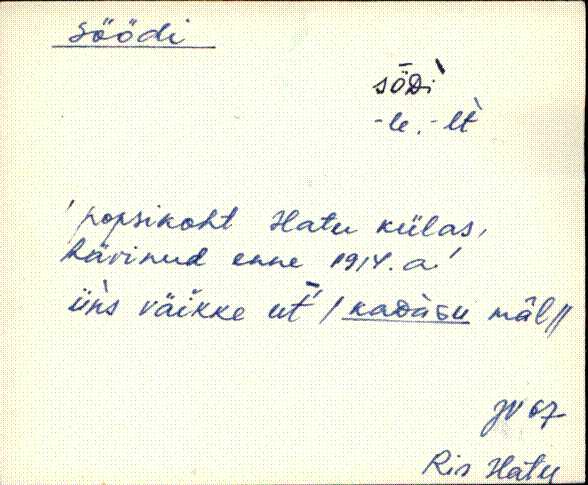 söödi
sȫDì
-le, -lt̀
'popsikoht Hatu külas,
hävinud enne 1914.a.'
üǹs väikke / kaDàsu mäl //
JV 67
Ris Hatu